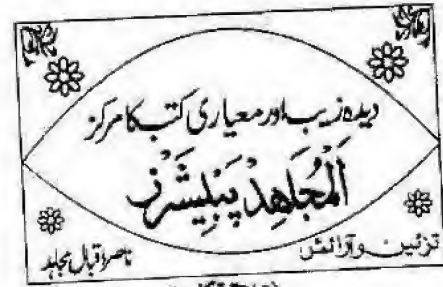 دیدہ زیب اور معیاری کتب کا مرکز
اَلْمُجَاهِدْ پَبلِیشَرْز
تزئین و آرائش ناصر اقبال مجاہد